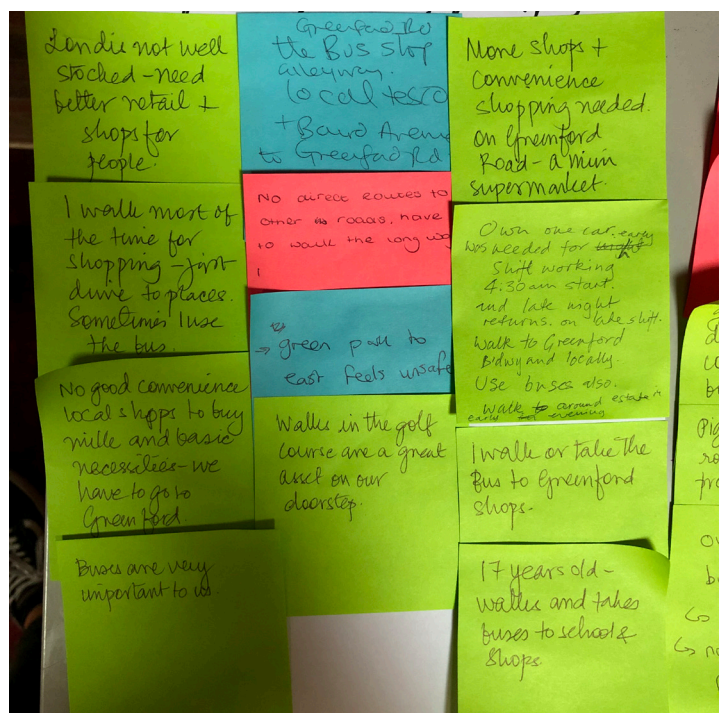 Londis not well
stocked - need
better retail +
shops for
people.
I walk most of
the time for
shopping - first
drive to places.
Sometimes I use
the bus.
No good convenience
local shops to buy
milk and basic
necessities - we
have to go to
Greenford
Buses are very
important to us.
Greenford Rd
the Bus stop
alleyway.
local tesco
+ Baird Avenue
to Greenford Rd
No direct routes to
other roads. have
to walk the long way
→ green path to
east feels unsafe
Walks in the golf
course are a great
asset on our
doorstep.
More shops +
Convenience
shopping needed.
on Greenford
Road - a mini
supermarket.
Own one car. early
was needed for
Shift working
4:30am start.
and late night
returns. on late shift.
Walk to Greenford
Bdwy and locally.
Use buses also.
Walk around estate in
early evening
I walk or take the
Bus to Greenford
shops.
17 years old -
walks and takes
buses to school &
shops